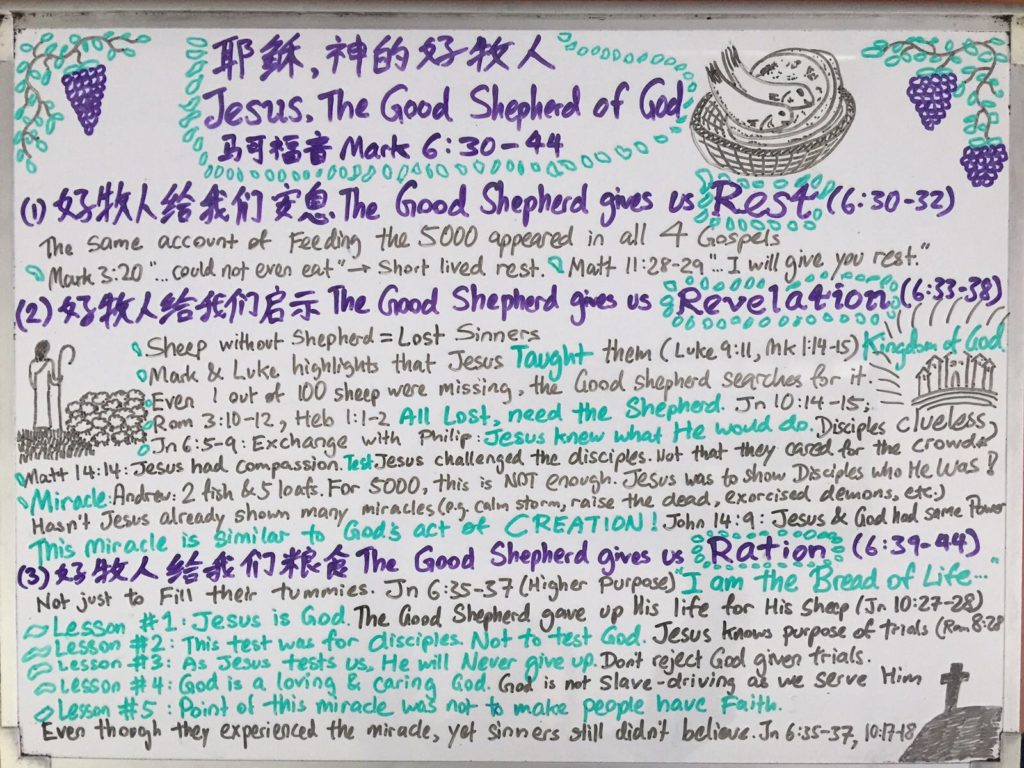 耶稣,神的好牧人
Jesus, The Good Shepherd of God
马可福音 Mark 6:30-44
(1) 好牧人给我们安息. The Good Shepherd gives us Rest (6:30-32)
The same account of Feeding the 5000 appeared in all 4 Gospels
Mark 3:20 "...could not even eat" → Short lived rest. Matt 11:28-29 "...I will give you rest."
(2) 好牧人给我们启示 The Good Shepherd gives us Revelation (6:33-38)
Sheep without Shepherd = Lost Sinners
Mark & Luke highlights that Jesus Taught them (Luke 9:11, Mk 1:14-15) Kingdom of God
Even 1 out of 100 sheep were missing, the Good shepherd searches for it.
Rom 3:10-12, Heb 1:1-2 All Lost, need the Shepherd. Jn 10:14-15;
Jn 6:5-9: Exchange with Philip: Jesus knew what He would do. Disciples clueless,
Matt 14:14: Jesus had compassion. Test Jesus challenged the disciples. Not that they cared for the crowds
Miracle: Andrew: 2 fish & 5 loafs. For 5000, this is NOT enough. Jesus was to show Disciples who He Was!
Hasn't Jesus already shown many miracles (e.g. calm storm, raise the dead, exorcised demons, etc.)
This miracle is similar to God's act of CREATION! John 14:9: Jesus & God had same Power
(3) 好牧人给我们粮食 The Good Shepherd gives us Ration (6:39-44)
Not just to Fill their tummies. Jn 6:35-37 (Higher Purpose) "I am the Bread of Life..."
Lesson #1: Jesus is God. The Good Shepherd gave up His life for His Sheep (Jn 10:27-28)
Lesson #2: This test was for disciples. Not to test God. Jesus knows purpose of trials (Rom 8:28
Lesson #3: As Jesus tests us, He will Never give up. Don't reject God given trials.
Lesson #4: God is a loving & caring God. God is not slave-driving as we serve Him
Lesson #5: Point of this miracle was not to make people have Faith.
Even though they experienced the miracle, yet sinners still didn't believe. Jn 6:35-37, 10:17-18